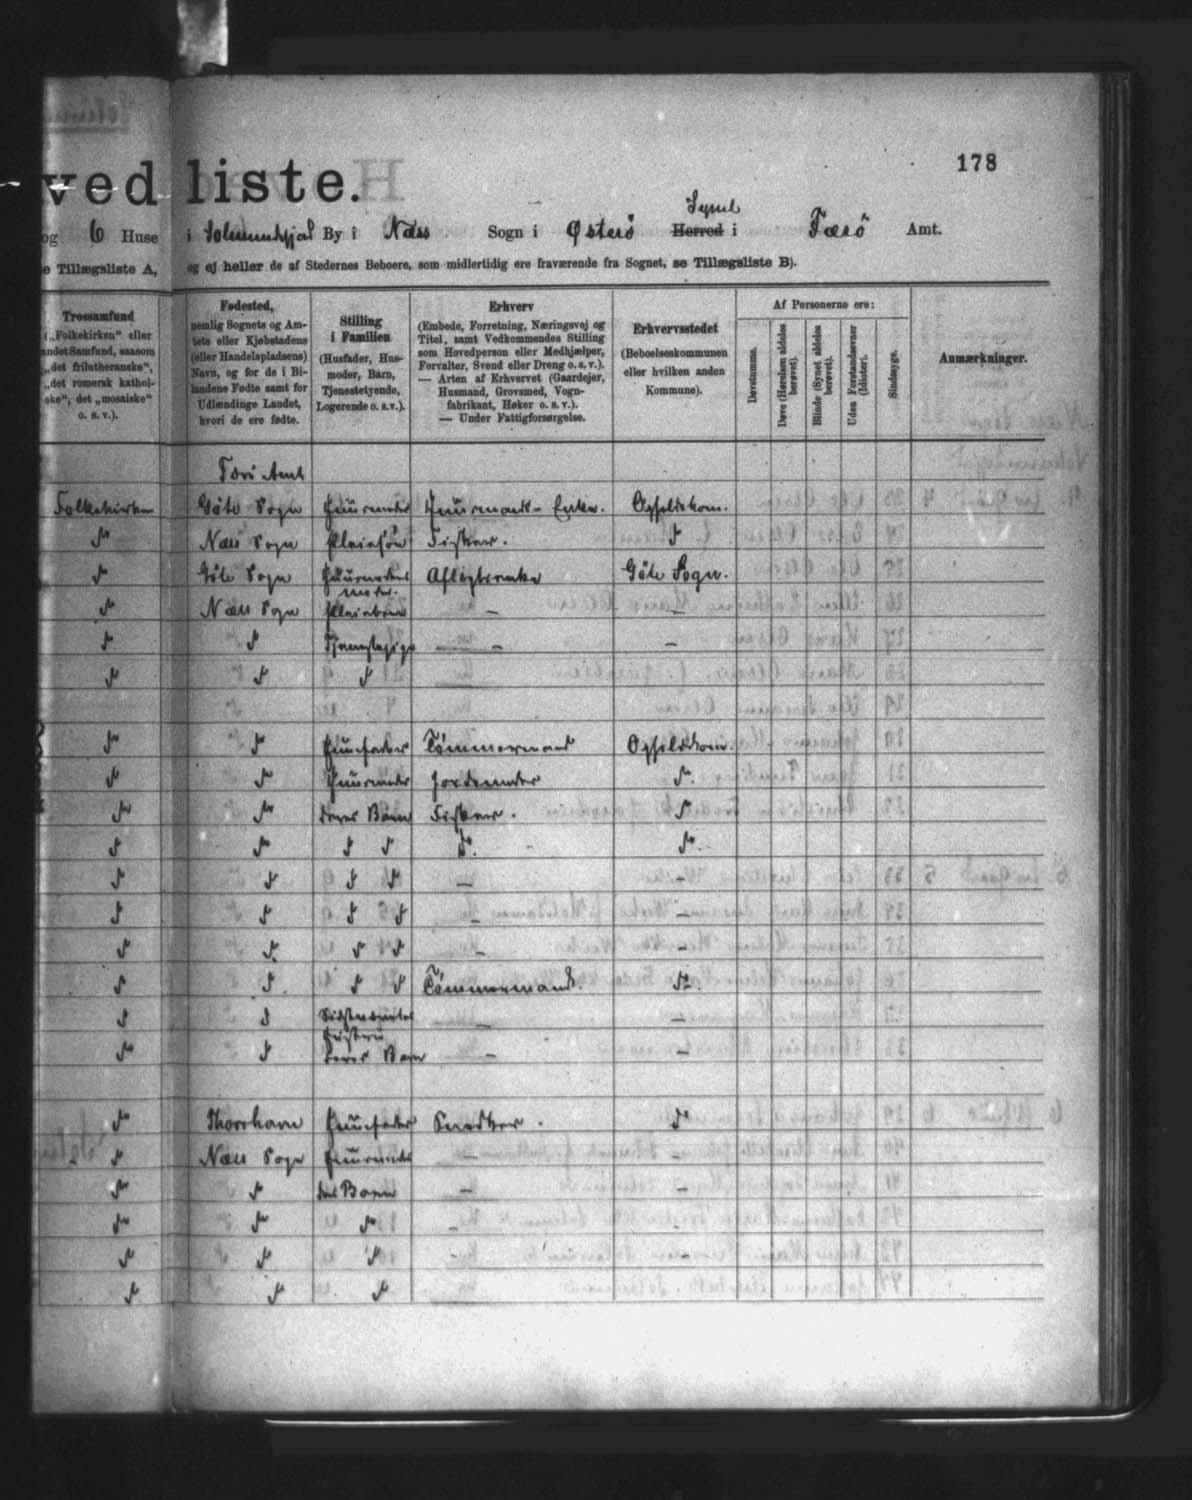 178
ved liste.
Syssel
og 6 Huse i Solmundefjæl By i Næs Sogn i Østerö Herred i Færö Amt.
e Tillægsliste A, og ej heller de af Stedernes Beboere, som midlertidig ere fraværende fra Sognet, se Tillægsliste B).
Trossamfund
(„Folkekirken“ eller
andet Samfund, saasom
„det frilutheranske“,
„det romersk kathol-
ske“, det „mosaiske“
o. s. v.).
Fødested,
nemlig Sognets og Am-
tets eller Kjøbstadens
(eller Handelspladsens)
Navn, og for de i Bi-
landene Fødte samt for
Udlændinge Landet,
hvori de ere fødte.
Stilling
i Familien
(Husfader, Hus-
moder, Barn,
Tjenestetyende,
Logerende o. s.v.).
Erhverv
(Embede, Forretning, Næringsvej og
Titel, samt Vedkommendes Stilling
som Hovedperson eller Medhjælper,
Forvalter, Svend eller Dreng o. s. v.).
— Arten af Erhvervet (Gaardejer,
Husmand, Grovsmed, Vogn-
fabrikant, Høker o. s. v.).
— Under Fattigforsørgelse.
Erhvervsstedet
(Beboelseskommunen
eller hvilken anden
Kommune).
Af Personerne ere:
Døvstumme.
Døve (Hørelsen aldeles
berøvet).
Blinde (Synet aldeles
berøvet).
Uden Forstandsevner
(Idioter).
Sindssyge.
Anmærkninger.
Færö Amt
Folkekirken Göte Sogn Huusmoder Huusmands-Enke. Opholdskom.
do Næs Sogn Pleiesøn Fisker. do
do Göte Sogn Huusmoders Aflægtsenke Göte Sogn.
moder.
do Næs Sogn Pleiebarn — —
do do Tjenestepige — —
do do do
do do Huusfader Tømmermand Opholdskom.
do do Huusmoder Jordemoder do.
do do deres Barn Fisker. do
do do do do do. do.
do do do do — —
do do do do — —
do do do do — —
do do do do Tømmermand. do.
do do Sidstnævntes — —
Hustru
do do deres Barn — —
do Thorshavn Huusfader Snedker. do
do Næs Sogn Huusmoder — —
do do des Barn — —
do do do —
do do do — —
do do do